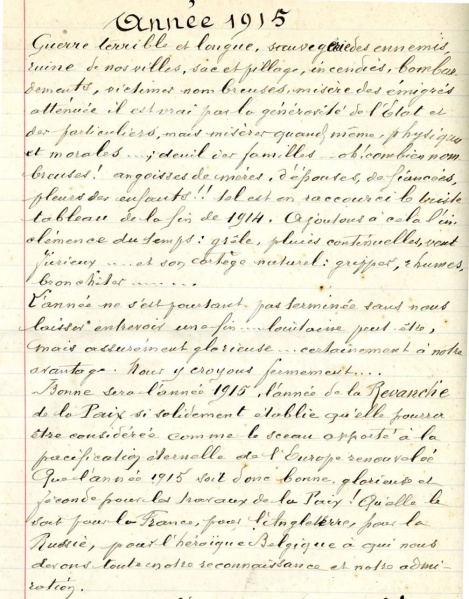 Année 1915
Guerre terrible et longue, sauvagerie des ennemis,
ruine de nos villes, sac et pillage, incendies, bombar
dements, victimes nombreuses, misère des émigrés
atténuée il est vrai par la générosité de l'Etat et
des particuliers, mais misère quand même, physique
et morales ...; deuil des familles ... oh! combien nom
breuses! angoisses de mères, d'épouses, de fiancées,
pleurs des enfants!! tel est en raccourci le triste
tableau de la fin de 1914. Ajoutons à cela l'in
clémence du temps: grêle, pluies continuelles, vent
furieux .... et son cortège naturel: grippes, rhumes,
bronchites .......
L'année ne s'est pourtant pas terminée sans nous
laisser entrevoir une fin ... lointaine peut-être,
mais assurément glorieuse ... certainement à notre
avantage. Nous y croyons fermement ....
Bonne sera l'année 1915, l'année de la Revanche
de la Paix si solidement établie qu'elle pourra
être considérée comme le sceau apporté à la
pacification éternelle de l'Europe renouvelée
Que l'année 1915 soit donc bonne, glorieuse et
féconde pour les travaux de la Paix! Qu'elle le
soit pour la France, pour l'Angleterre, pour la
Russie, pour l'héroïque Belgique à qui nous
devons toute notre reconnaissance et notre admi-
ration.